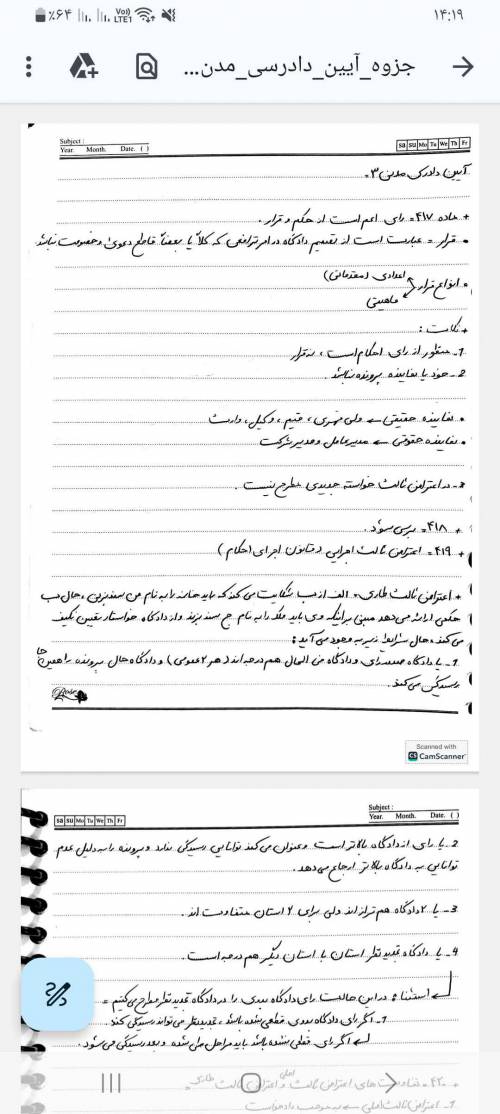 ۱۴:۱۹ ٪۶۴ Vo)) LTE1
جزوه_آیین_دادرسی_مدن...
Subject :
Year. Month. Date. ( )
Sa Su Mo Tu We Th Fr
آیین دادرسی مدنی ۳.
+ ماده ۴۱۷ = رای اعم است از حکم و قرار.
• قرار = عبارت است از تصمیم دادگاه در امر ترافعی که کلاً یا بعضاً قاطع دعوی و خصومت نباشد
• انواع قرار
اعدادی (مقدماتی)
ماهیتی
+ نکات :
1- منظور از رای احکام است، نه قرار
2- خود یا نماینده پرونده نباشد.
• نماینده حقیقی ← ولی قهری، قیم، وکیل، وارث
• نماینده حقوقی ← مدیر عامل و مدیر شرکت
3- در اعتراض ثالث خواسته جدیدی مطرح نیست.
+ ۴۱۸ = بررسی شود.
+ ۴۱۹ = اعتراض ثالث اجرایی (قانون اجرای احکام)
+ اعتراض ثالث طاری = الف از ب شکایت می کند که باید خانه را به نام من سند بزنی، حال ب
حکمی ارائه می دهد مبنی بر اینکه وی باید ملک را به نام ج سند بزند و از دادگاه خواستار تعیین تکلیف
می کند، حال شرایط زیر به وجود می آید :
1- یا دادگاه صادرکننده رای و دادگاه فی الحال هم درجه اند (هر ۲ عمومی) و دادگاه حال پرونده را همین جا
رسیدگی می کند.
Rose
Scanned with
CS CamScanner
Sa Su Mo Tu We Th Fr
Subject :
Year. Month. Date. ( )
2- یا رای از دادگاه بالاتر است و عنوان می کند توانایی رسیدگی ندارد و پرونده را به دلیل عدم
توانایی به دادگاه بالاتر ارجاع می دهد.
3- یا ۲ دادگاه هم تراز اند ولی برای ۲ استان متفاوت اند.
4- یا دادگاه تجدید نظر استان با استان دیگر هم درجه است.
استثنا : در این حالت رای دادگاه بدوی را در دادگاه تجدید نظر مطرح می کنیم =
1- اگر رای دادگاه بدوی قطعی نشده باشد، تجدید نظر می تواند رسیدگی کند.
اگر رای قطعی نشده باشد باید مراحل طی شده و بعد رسیدگی می شود.
+ ۴۲۰ = تفاوت های اعتراض ثالث اصلی و اعتراض ثالث طاری.
1- اعتراض ثالث اصلی ← به موجب دادخواست